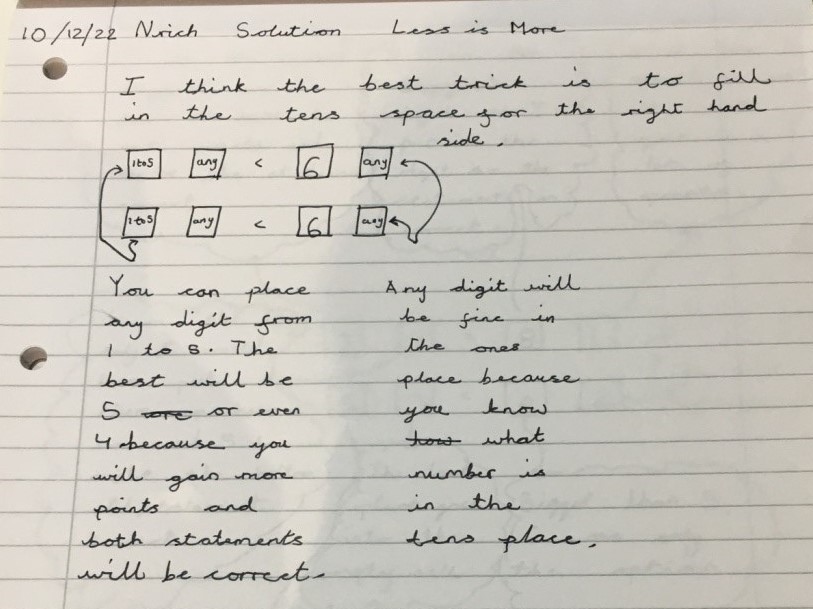 10/12/22 Nrich Solution Less is More
I think the best trick is to fill
in the tens space for the right hand
side.
1 to 5 any < 6 any
1 to 5 any < 6 any
You can place
any digit from
1 to 5. The
best will be
5 or even
4 because you
will gain more
points and
both statements
will be correct.
Any digit will
be fine in
the ones
place because
you know
what
number is
in the
tens place.